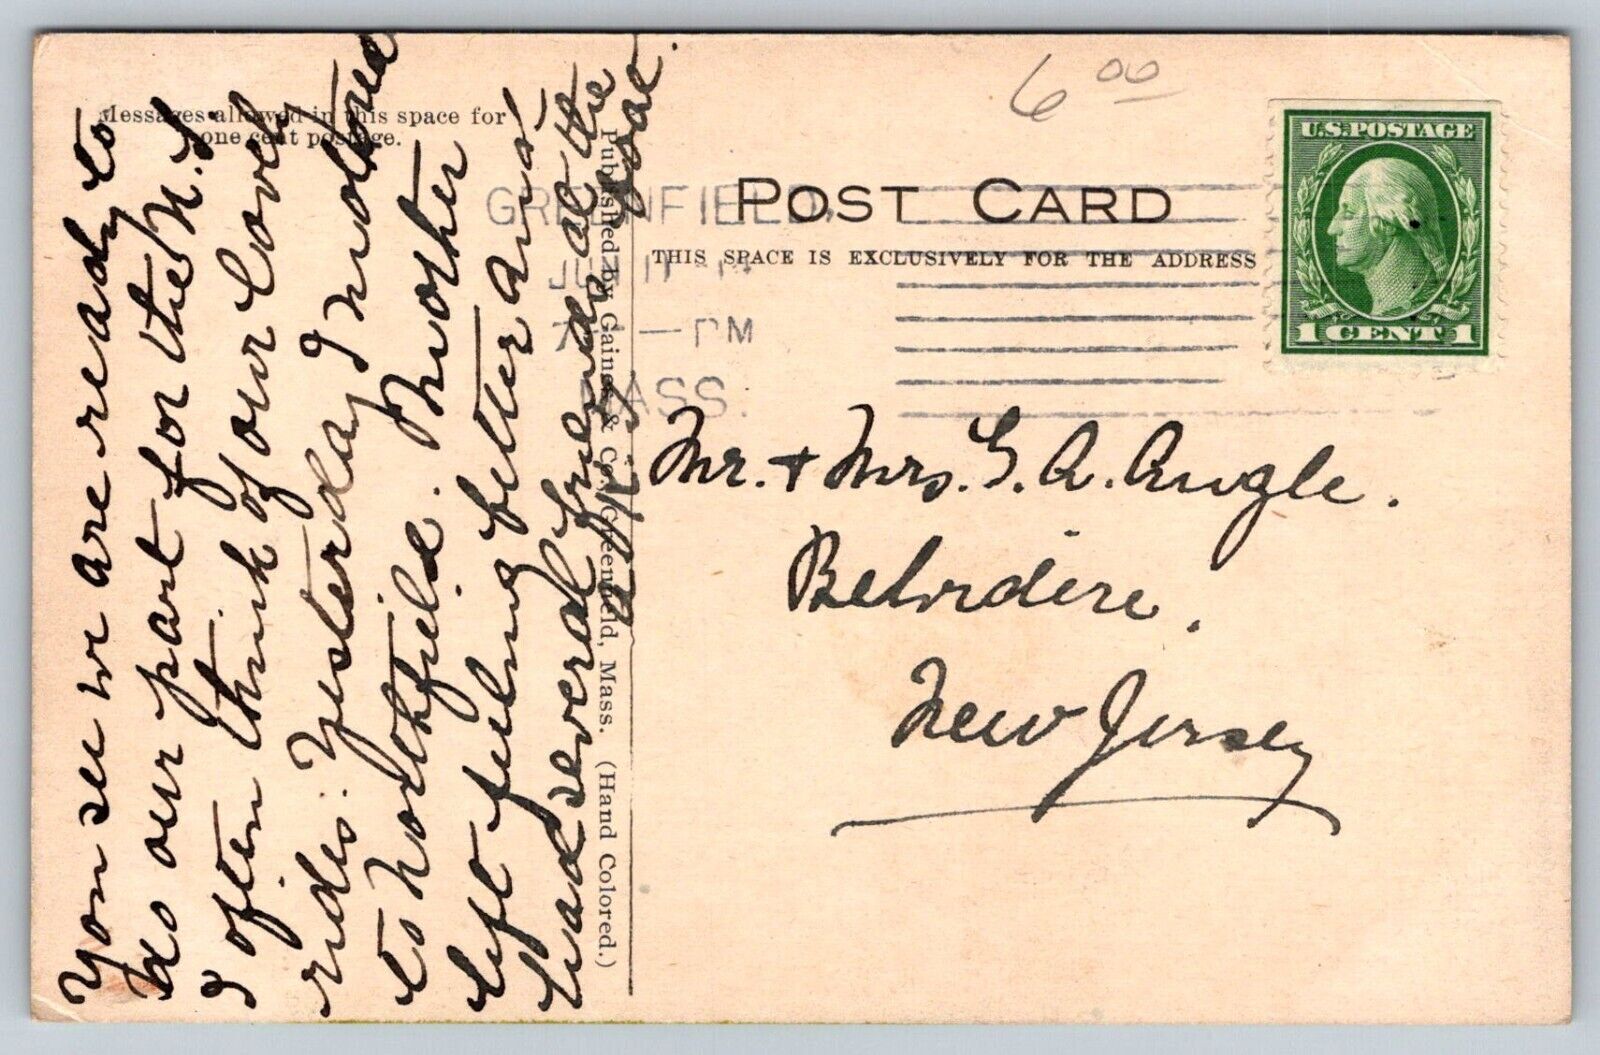 You see we are ready to
do our part for the N.S.
I often think of our lovely
rides. Yesterday I motored
to Northfield. Mother
left feeling better and
had several friends at the
door.
Messages allowed in this space for
one cent postage.
Published by Gaines & Co., Greenfield, Mass. (Hand Colored.)
6 00
GREENFIELD,
PM
MASS.
POST CARD
THIS SPACE IS EXCLUSIVELY FOR THE ADDRESS
U.S. POSTAGE
1 CENT 1
Mr. + Mrs. G. A. Angle.
Belvidere,
New Jersey